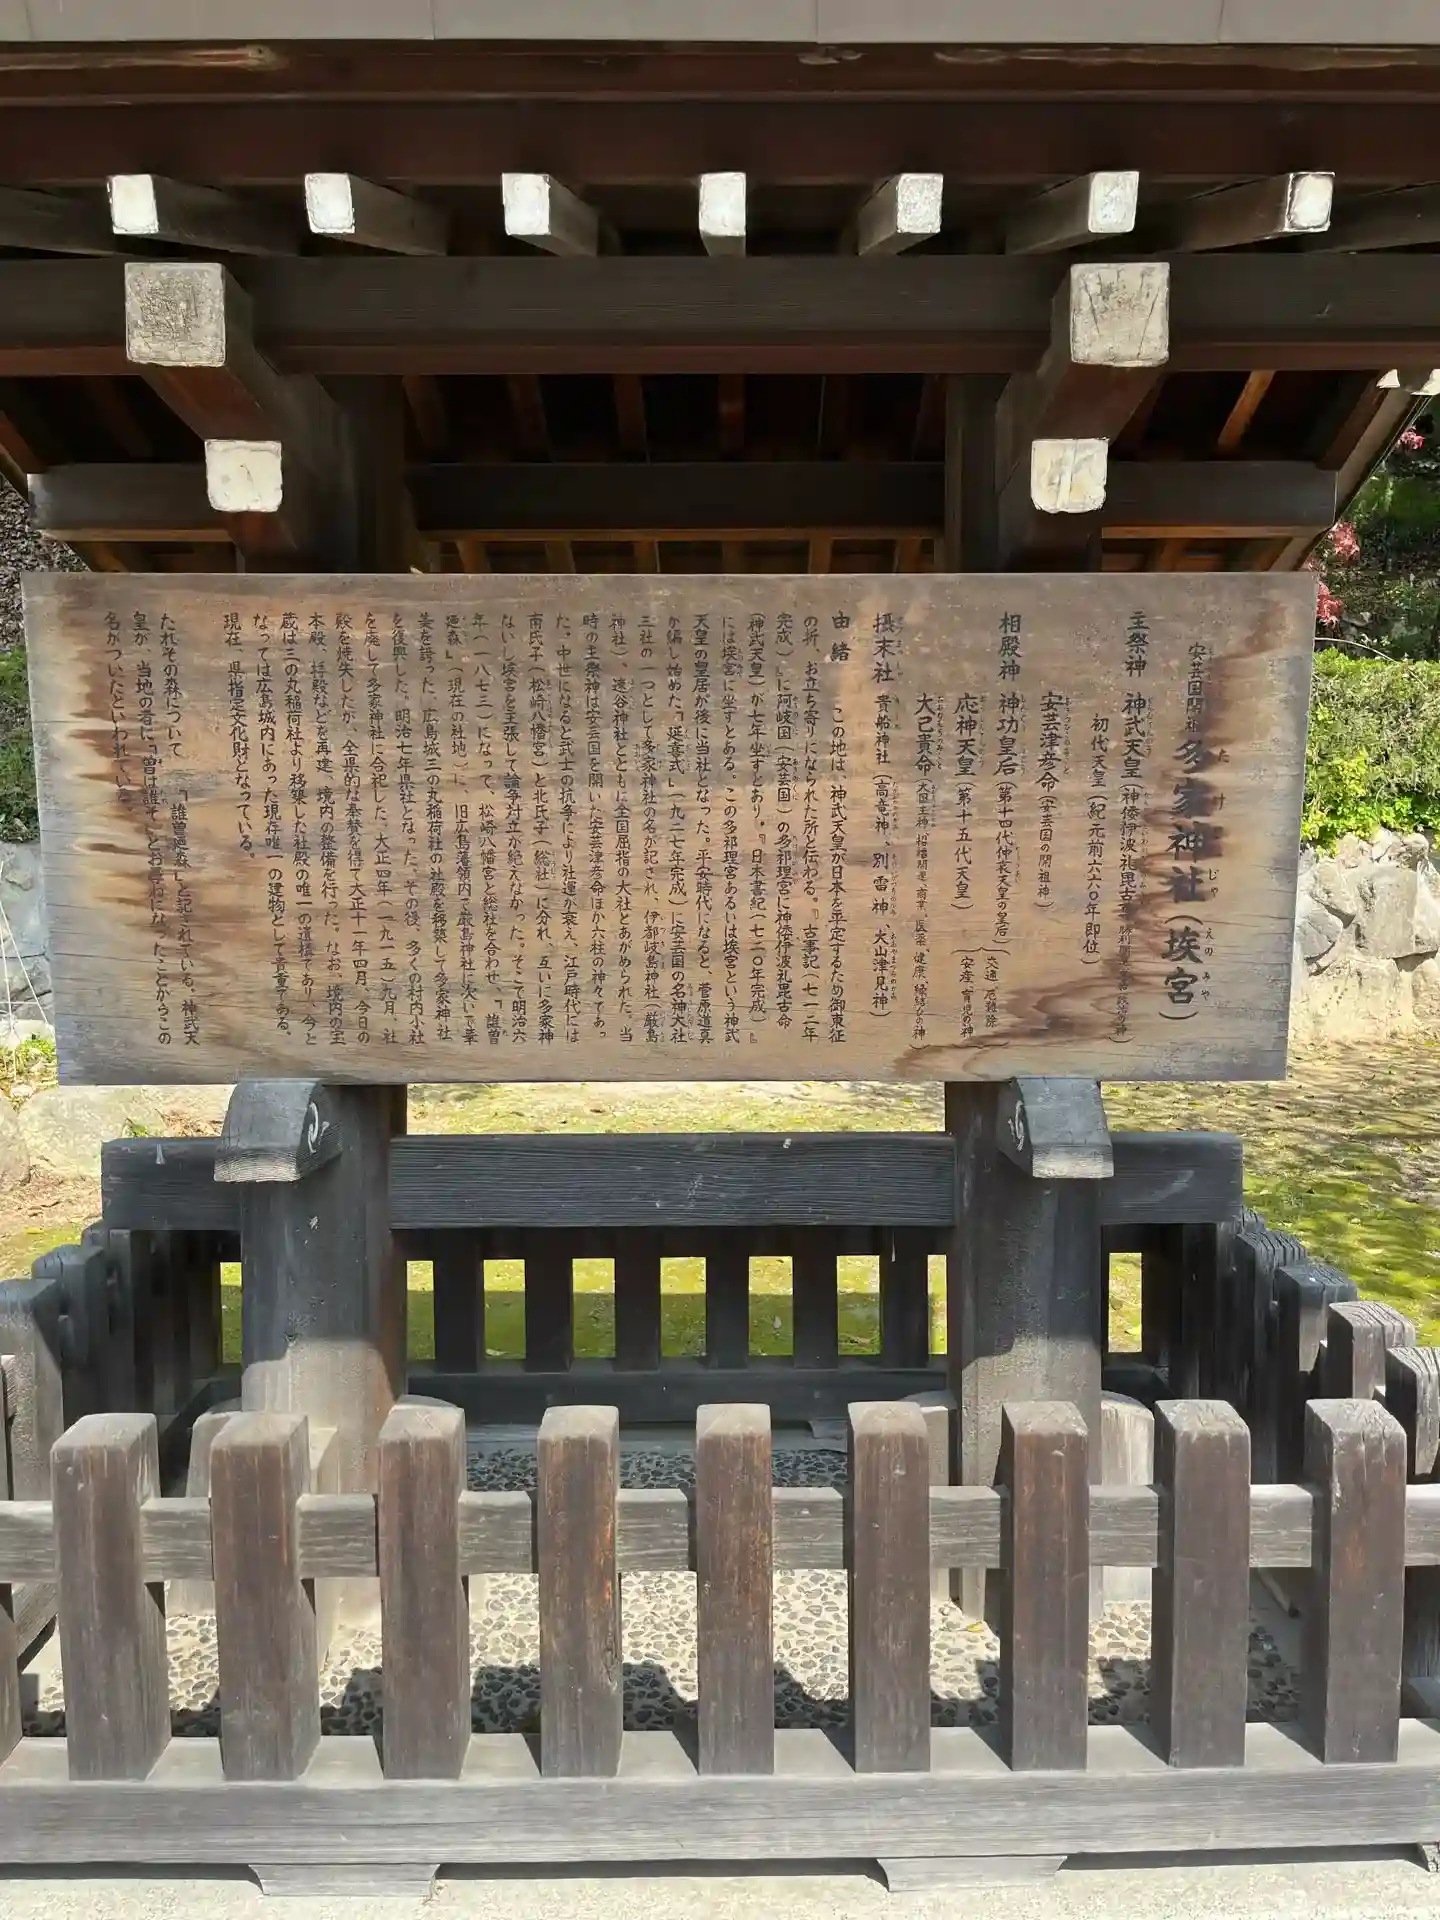 安芸国開祖 多家神社（埃宮）
主祭神 神武天皇（神倭伊波礼毘古命
初代天皇（紀元前六六〇年即位）
安芸津彦命（安芸国の開祖神）
相殿神 神功皇后（第十四代仲哀天皇の皇后）（交通、厄難除
応神天皇（第十五代天皇） 安産、育児の神
大己貴命（大国主神、招福開運、商業、医薬、健康、縁結びの神）
摂末社 貴船神社（高竜神、別雷神、大山津見神）
由緒 この地は、神武天皇が日本を平定するため御東征
の折、お立ち寄りになられた所と伝わる。『古事記（七一二年
完成）』に阿岐国（安芸国）の多祁理宮に神倭伊波礼毘古命
（神武天皇）が七年坐すとあり、『日本書紀（七二〇年完成）』
には埃宮に坐すとある。この多祁理宮あるいは埃宮という神武
天皇の皇居が後に当社となった。平安時代になると、菅原道真
が編し始めた『延喜式』（九二七年完成）に安芸国の名神大社
三社の一つとして多家神社の名が記され、伊都岐島神社（厳島
神社）、速谷神社とともに全国屈指の大社とあがめられた。当
時の主祭神は安芸国を開いた安芸津彦命ほか六柱の神々であっ
た。中世になると武士の抗争により社運が衰え、江戸時代には
南氏子（松崎八幡宮）と北氏子（総社）に分れ、互いに多家神
ないし埃宮を主張して論争対立が絶えなかった。そこで明治六
年（一八七三）になって、松崎八幡宮と総社を合わせ、『誰曽
廼森』（現在の社地）に、旧広島藩領内で厳島神社に次いで華
美を誇った、広島城三の丸稲荷社の社殿を移築して多家神社
を復興した。明治七年県社となった。その後、多くの村内小社
を廃して多家神社に合祀した。大正四年（一九一五）九月、社
殿を焼失したが、全県的な奉賛を得て大正十一年四月、今日の
本殿、拝殿などを再建、境内の整備を行った。なお、境内の宝
蔵は三の丸稲荷社より移築した社殿の唯一の遺構であり、今と
なっては広島城内にあった現存唯一の建物として貴重である。
現在、県指定文化財となっている。
たれその森について 『誰曽廼森』と記されている。神武天
皇が、当地の者に『曽は誰そ』とお尋ねになったことからこの
名がついたといわれている。